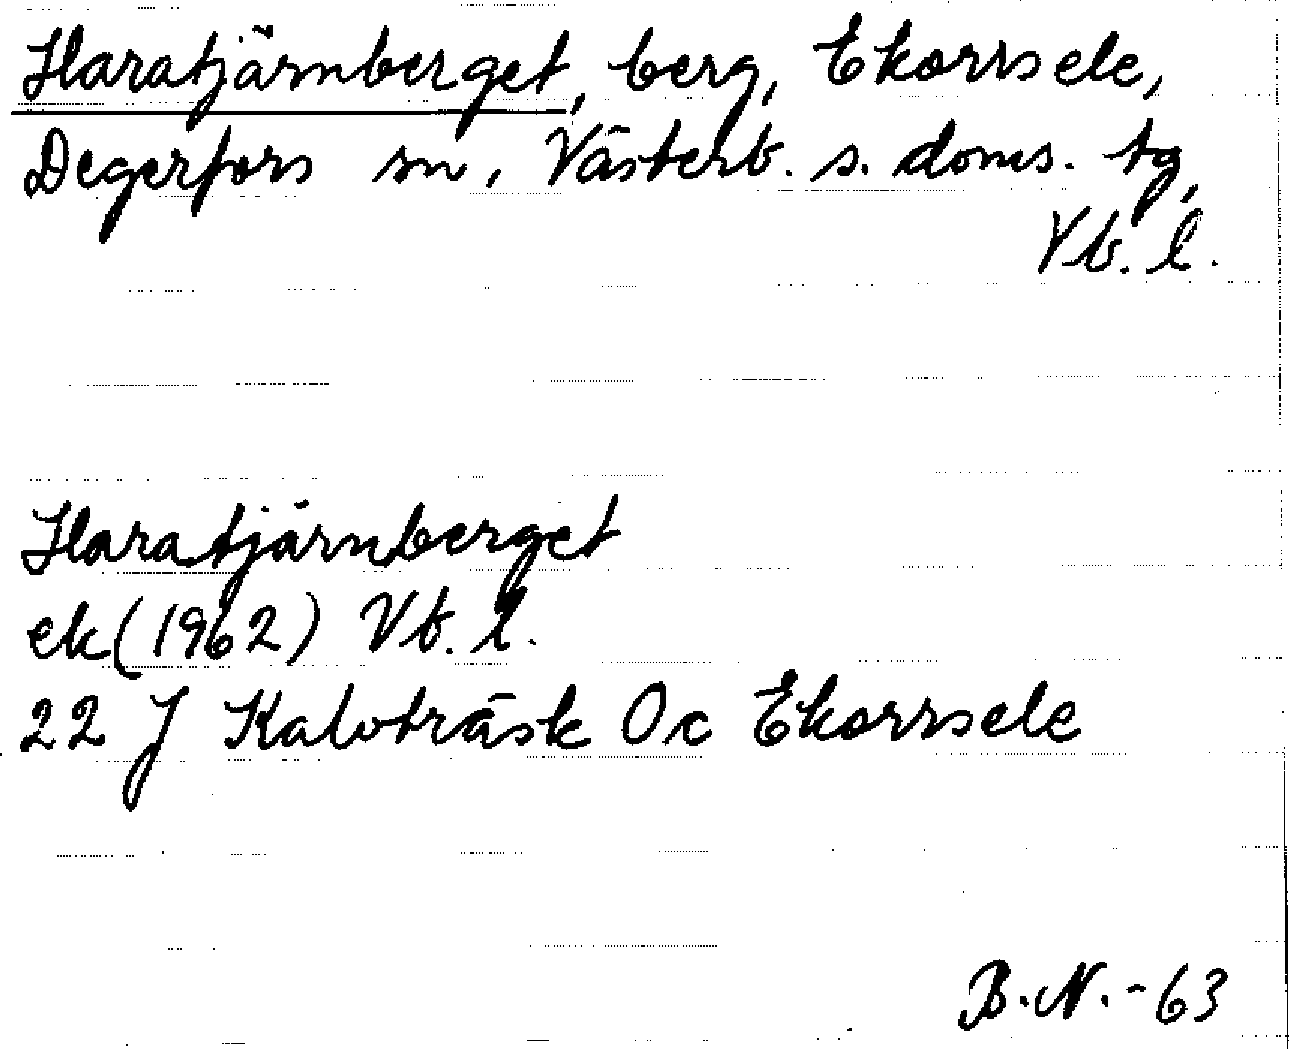 Haratjärnberget, berg, Ekorrsele,
Degerfors sn, Västerb. s. doms. tg,
Vb. l.
Haratjärnberget
ek (1962) Vb. l.
22 J Kalvträsk 0c Ekorrsele
B.N.-63